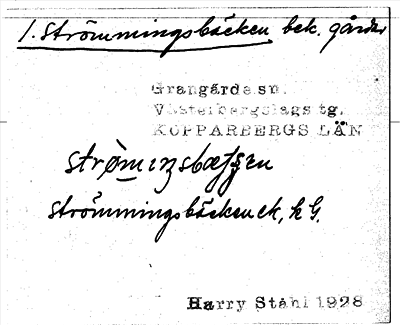 1. Strömmingsbäcken, bek. gårdar
Grangärde sn.
Västerbergslags tg.
KOPPARBERGS LÄN
Strömmingsbäcken ek, k G.
Harry Ståhl 1928